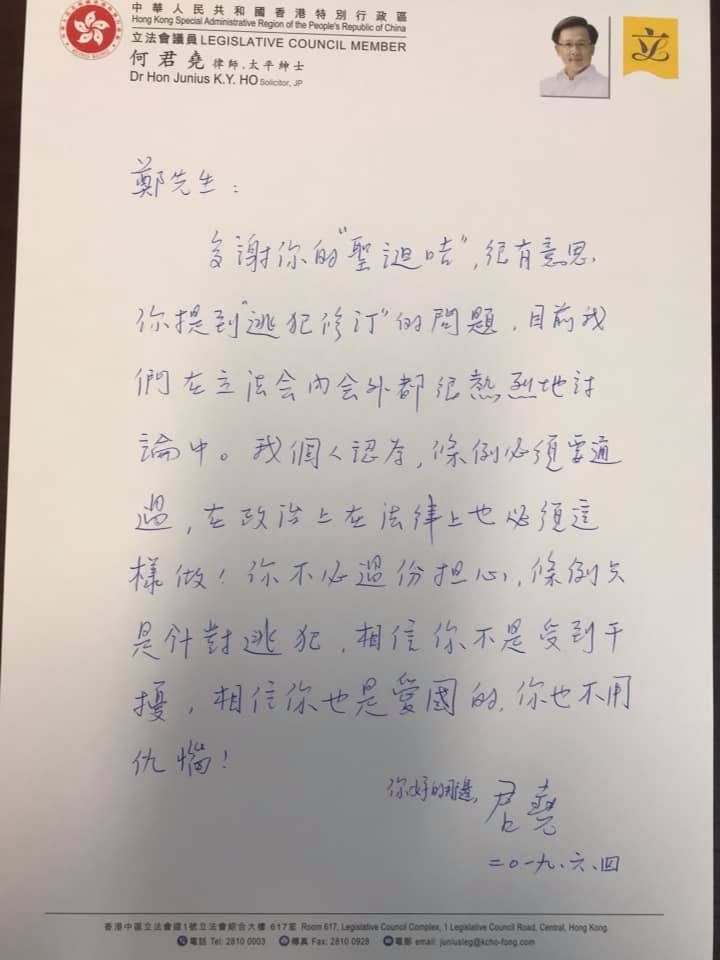 中華人民共和國香港特別行政區
Hong Kong Special Administrative Region of the People's Republic of China
立法會議員 LEGISLATIVE COUNCIL MEMBER
何君堯 律師, 太平紳士
Dr Hon Junius K.Y. HO Solicitor, JP
立
鄭先生：
多謝你的"聖誕咭", 很有意思.
你提到"逃犯修訂"的問題, 目前我
們在立法会內会外都很熱烈地討
論中。我個人認為, 條例必須要通
過, 在政治上在法律上也必須這
樣做! 你不必過份担心, 條例只
是針對逃犯, 相信你不是受到干
擾, 相信你也是愛國的, 你也不用
仇惱!
你好的 君堯
二0一九.六.四
香港中區立法會道1號立法會綜合大樓 617室 Room 617, Legislative Council Complex, 1 Legislative Council Road, Central, Hong Kong
電話 Tel: 2810 0003 傳真 Fax: 2810 0928 電郵 email: juniusleg@kcho-fong.com